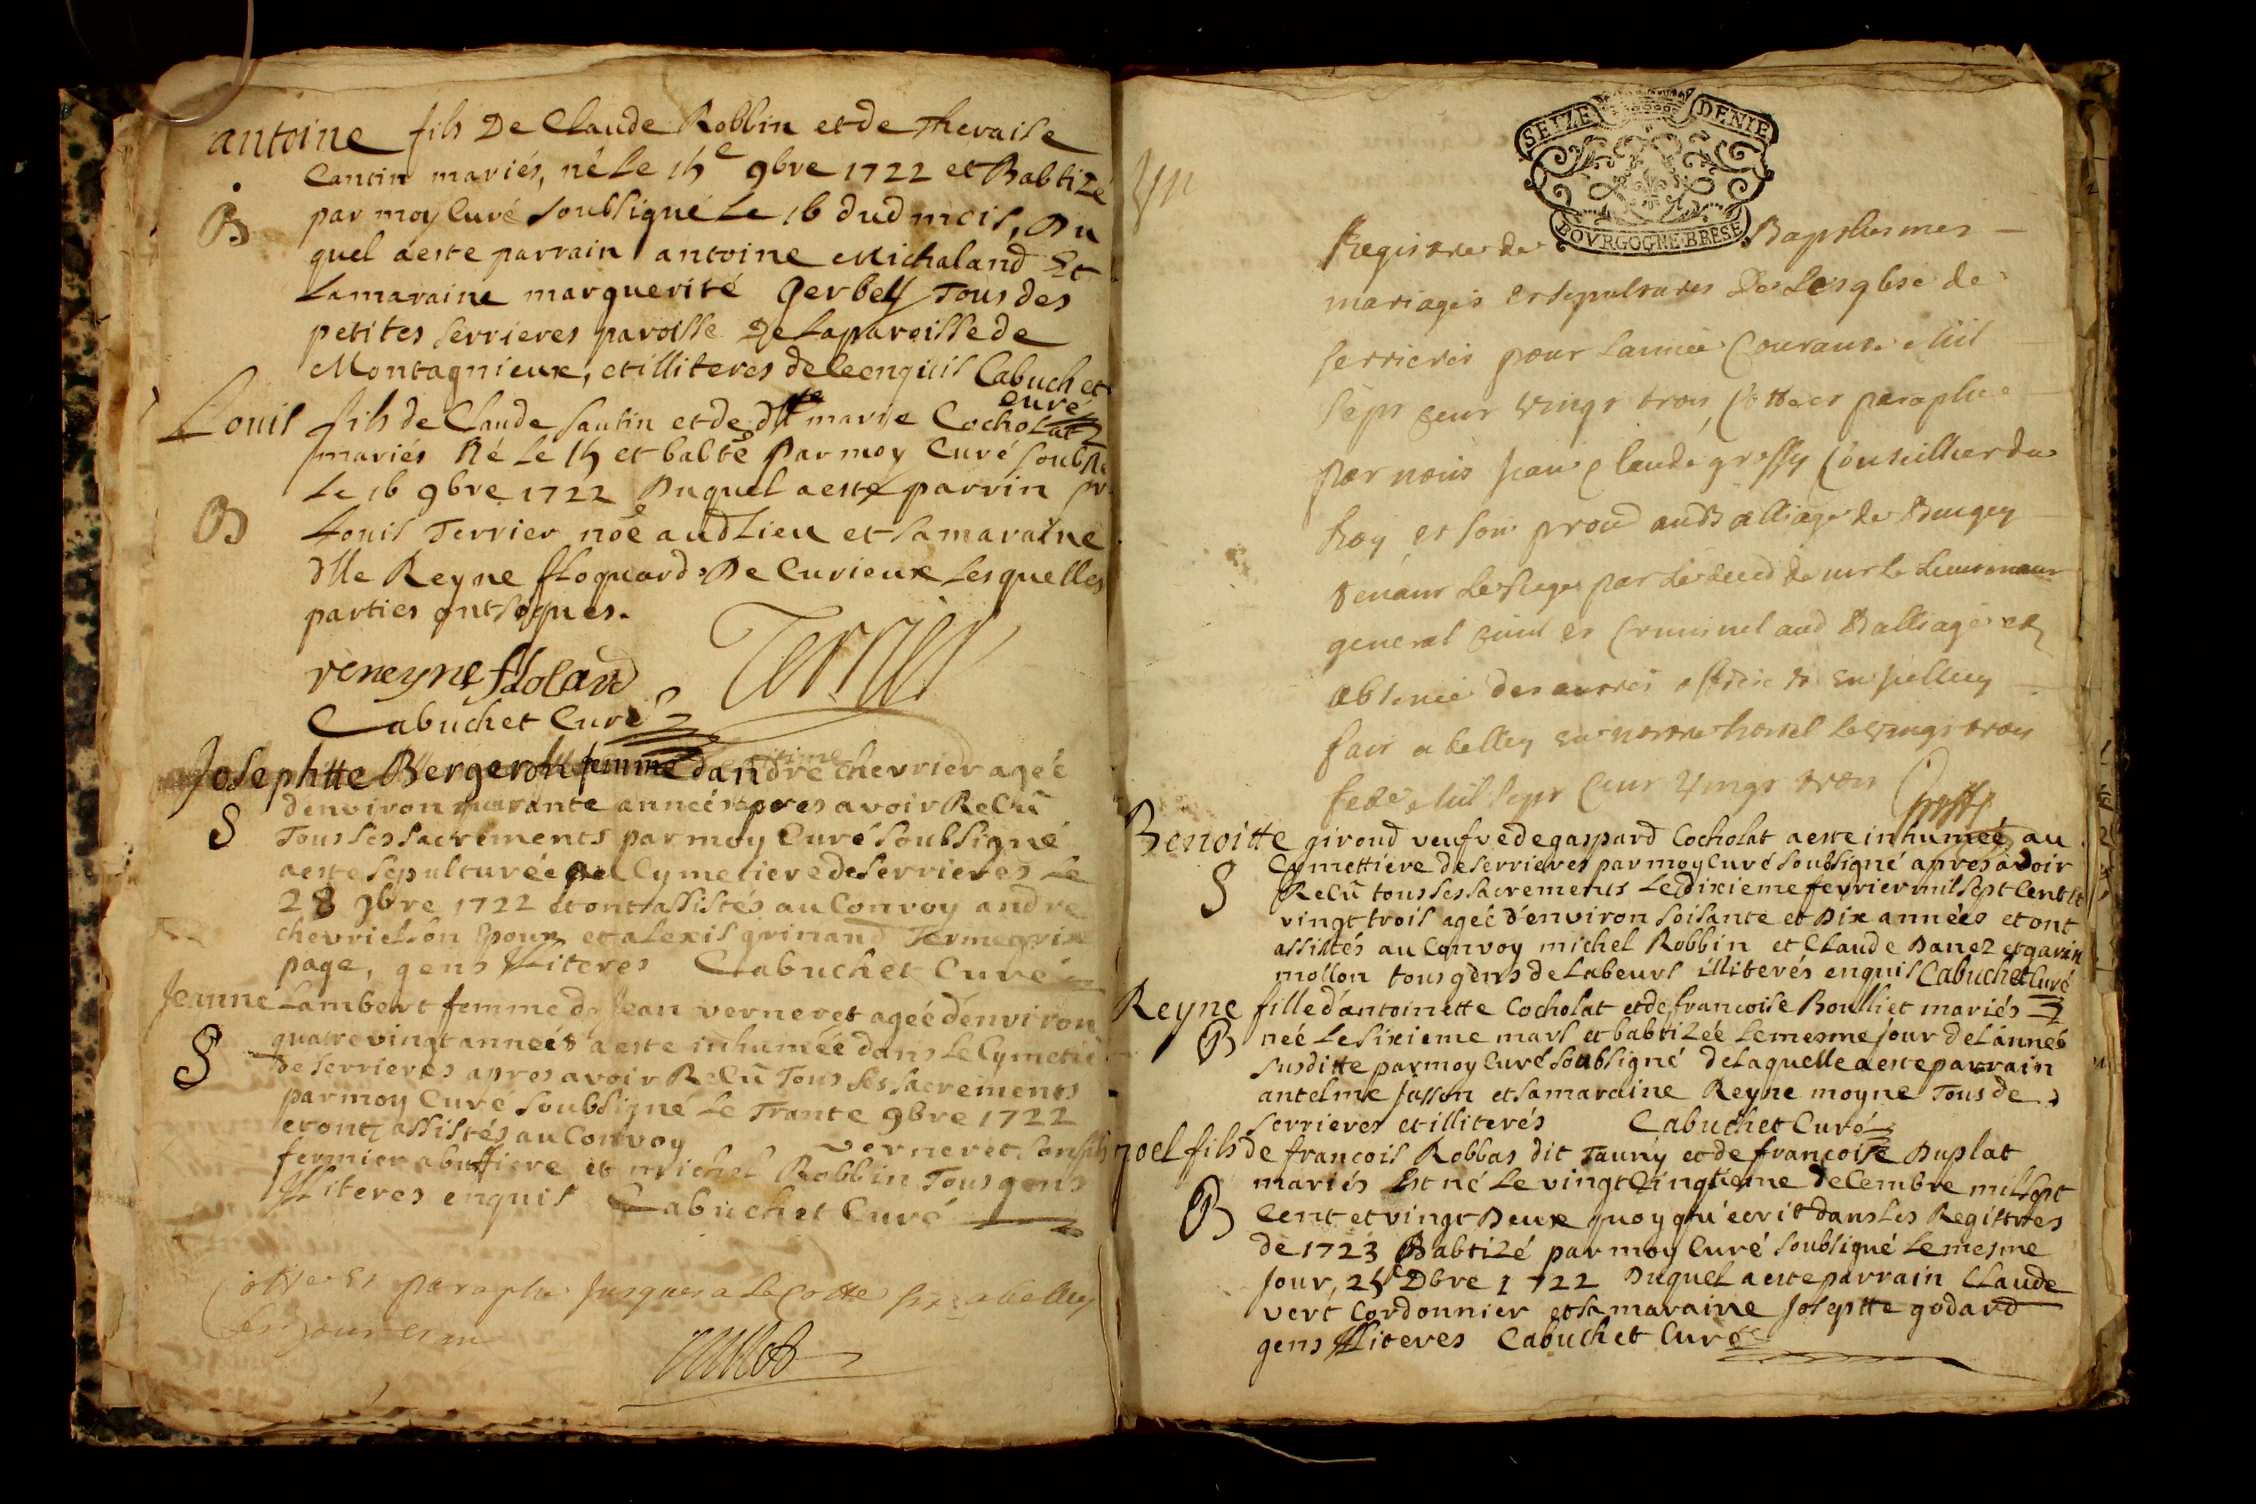 antoine fils De Claude Robbin et de Thevaise
Cantin mariés, né Le 15e 9bre 1722 et Babtizé
B par moy Curé soubsigné Le 16 dud mois, Du
quel a este parrain antoine Michaland Et
La maraine marguerite Gerbely Tous des
petites serrieres paroisse De La paroisse de
Montagnieux, et illiteres de ce enquis Cabuchet
curé
Louis fils de Claude santin et de dlle marie Cocholat
mariés Né Le 15 et babté Par moy Curé soubsné
B Le 16 9bre 1722 Duquel a este parrin sr
Louis Terrier noe aud Lieu et La maraine
dlle Reyne floquard De Curieux Lesquelles
parties ont signes.
reneyne
Terrier
Cabuchet Curé
Josephtte Bergeron femme d'andré chevrier ageé
d'environ quarante anneés apres avoir Reçeu
S Tous ses sacrements par moy Curé soubsigné
a este sepulturée au Cymetiere de serrieres Le
28 9bre 1722 et ont assistés au Convoy andre
chevrier son Epoux et alexis grinand
page, gens illiteres Cabuchet Curé
Jeanne Lambert femme de Jean verneret ageé d'environ
quatre vingt anneés a este inhumeé dans Le Cymetie
S de serrieres apres avoir Reçeu Tous ses sacrements
par moy Curé soubsigné Le Trante 9bre 1722
et ont assistés au Convoy verneret son fils
fermier a buffiere et michel Robbin Tous gens
illiteres enquis Cabuchet Curé
Cotté et paraphé jusques a La Cotte six a belley
Les jour et an
SEIZE DENIE
BOVRGOGNE BRESE
Registre de Baptesmes
mariages et sepultures De Lesglise de
serrieres pour L'année Courante Mil
sept Cent vingt trois, Cotté et paraphé
par nous Jean Claude greffy Conseillier du
Roy et son proud au Balliage de Bugey
tenant Le siege par Le deced de mr Le Lieutenant
general Civil et Criminel aud Balliage et
absence des autres
fait a belley en nostre hostel Le vingt trois
Mil sept Cent vingt trois
Benoitte girond veufve de gaspard Cocholat a este inhumeé au
Cymettiere de serrieres par moy Curé soubsigné apres avoir
S Reçeu tous ses sacrements Le dixieme fevrier mil sept Cent et
vingt trois ageé d'environ soisante et Dix années et ont
assistés au Convoy michel Robbin et Claude Danez et garin
mollon tous gens de Labeurs illiterés enquis Cabuchet Curé
Reyne fille d'antoinette Cocholat et de francoise Boulliet mariés
B neé Le sixieme mars et babtizée Le mesme jour de L'anneé
susditte par moy Curé soubsigné de Laquelle a este parrain
antelme Jasson et La maraine Reyne moyne Tous de
serrieres et illiterés Cabuchet Curé
noel fils de francois Robbas dit Tauny et de francoise Duplat
mariés Est né Le vingt Cinqtieme deCembre mil sept
B Cent et vingt Deux quoy qu'ecrit dans Les Registres
de 1723 Babtizé par moy Curé soubsigné Le mesme
Jour, 25e Dbre 1722 Duquel a este parrain Claude
vert Cordonnier et La maraine Joseptte godard
gens illiteres Cabuchet Curé